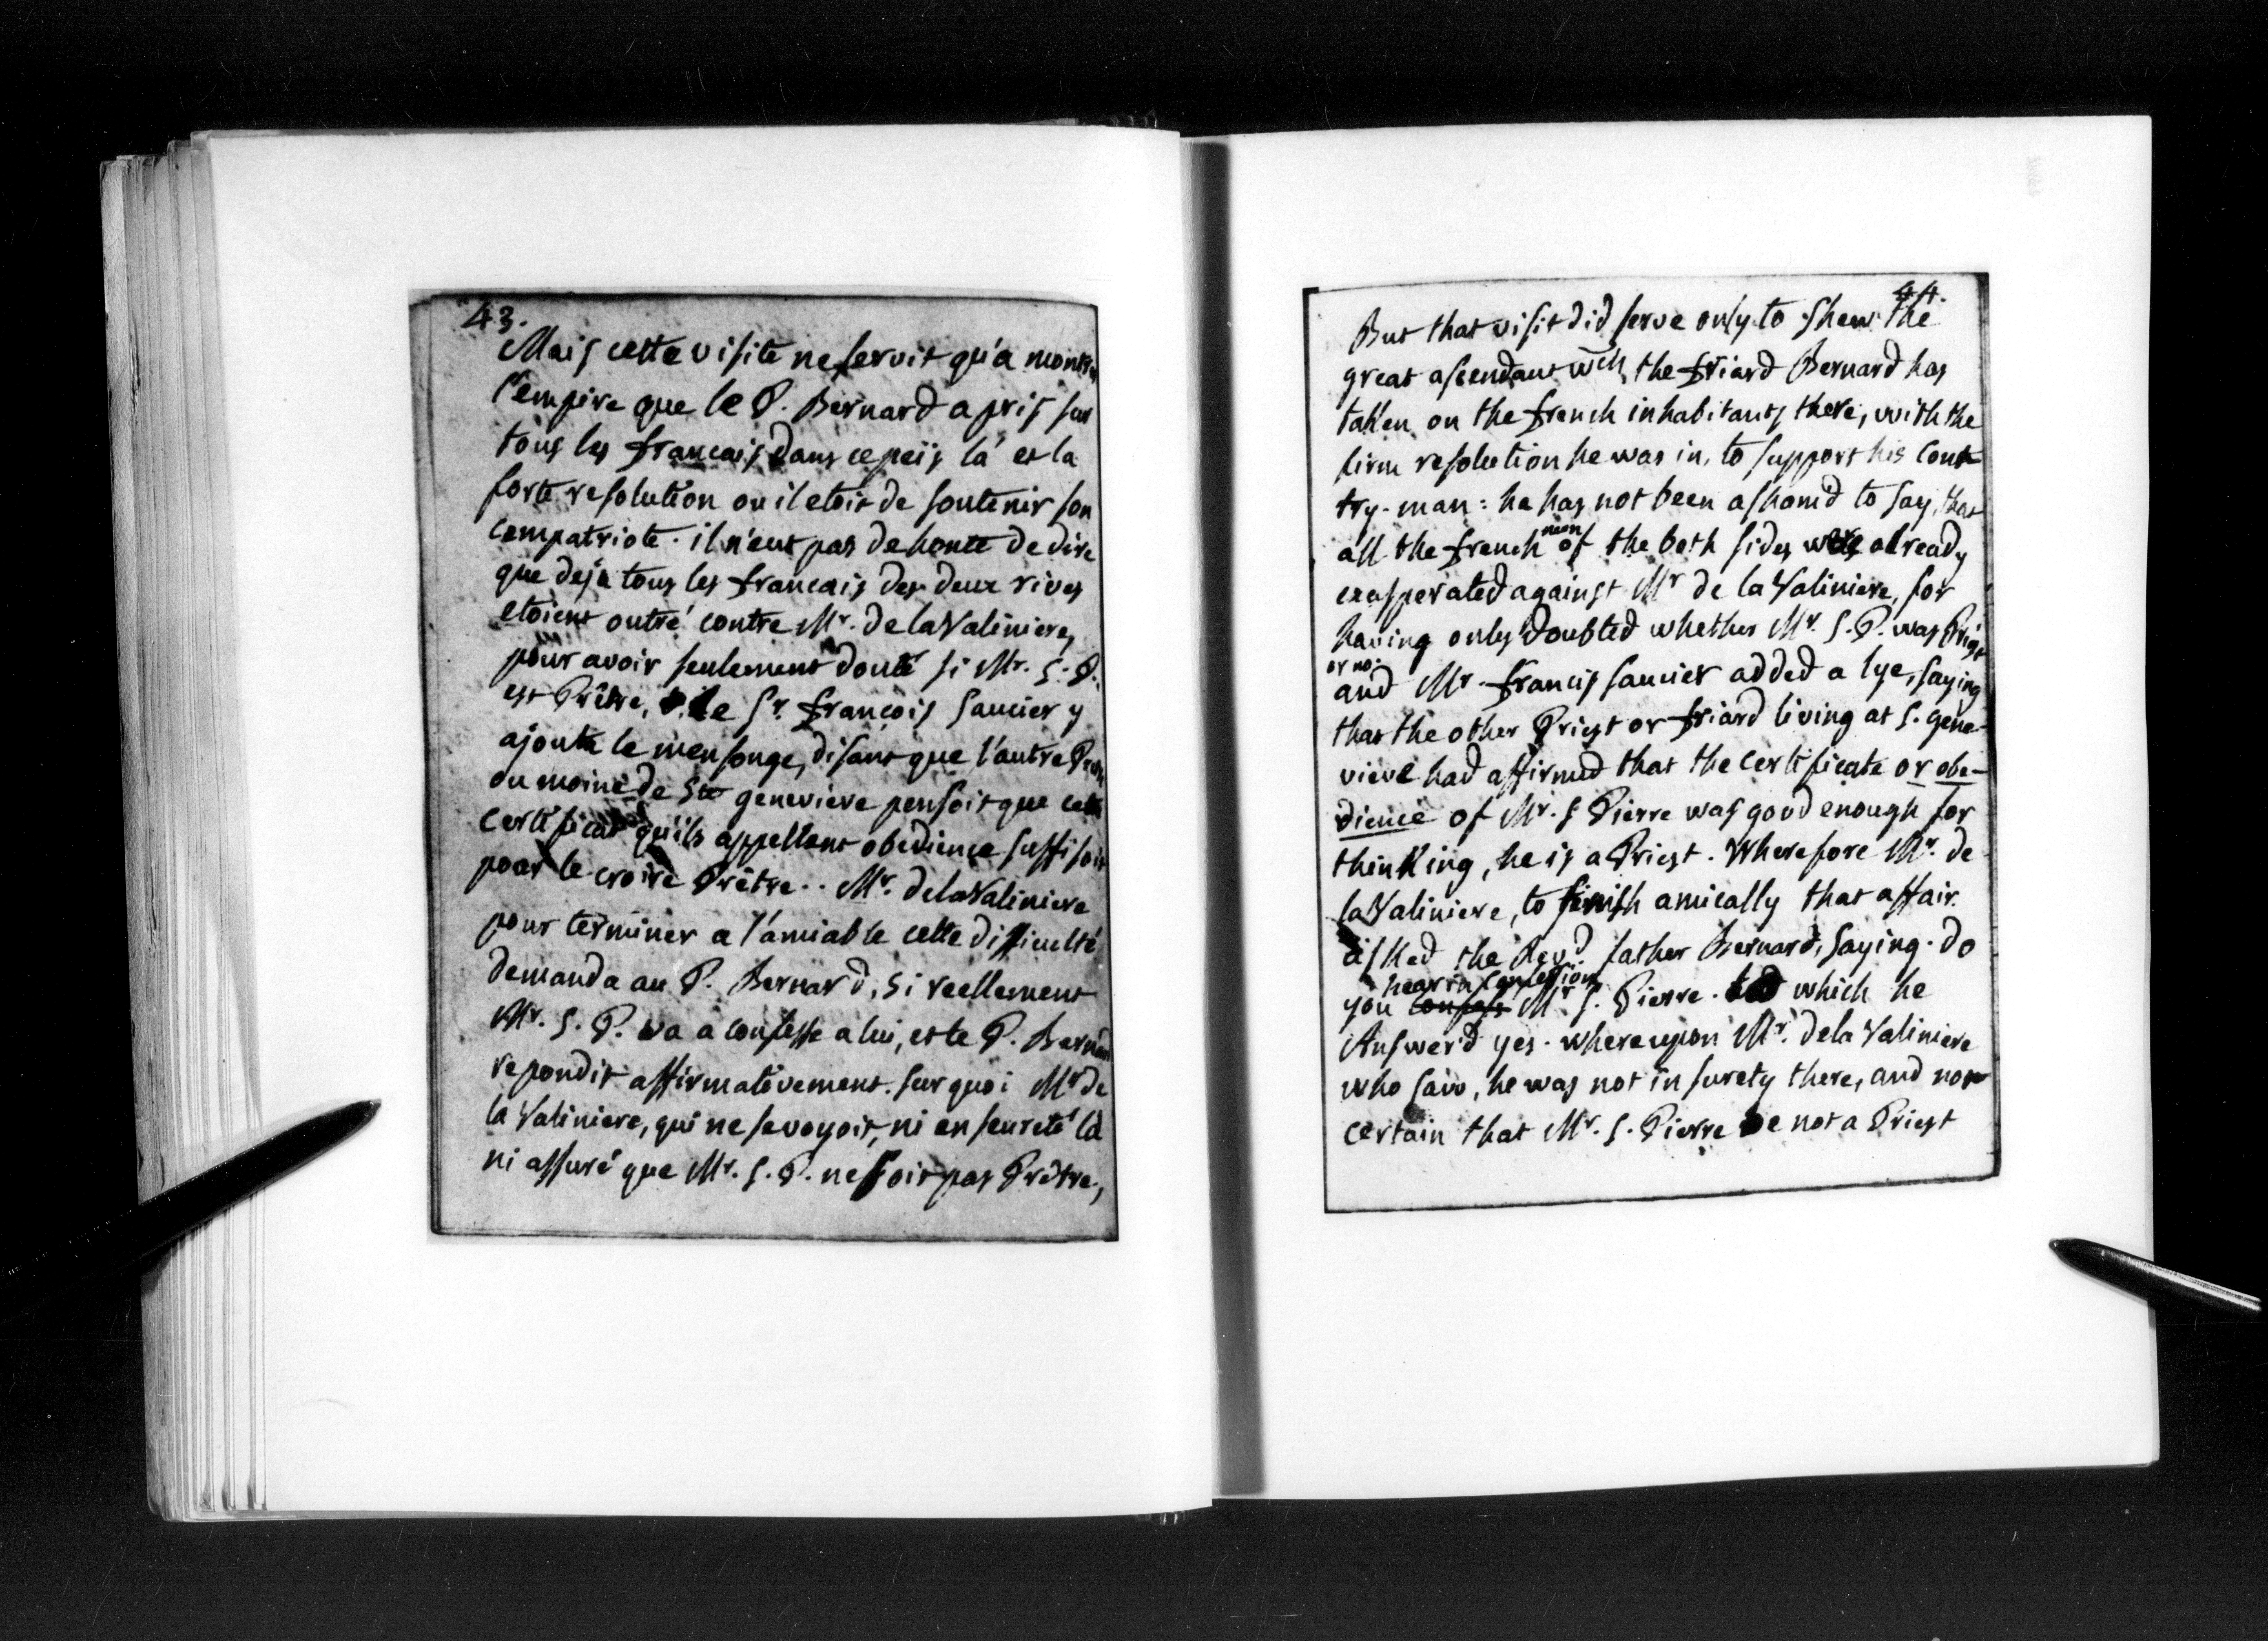 43.
Mais cette visite ne servit qu'a montrer
l'empire que le P. Bernard a pris sur
tous les francais dans ce peïs la' et la
forte resolution ou il etoit de soutenir son
compatriote. il n'eut pas de honte de dire
que deja tous les francais des deux rives
etoient outré contre Mr. de la Valiniere,
pour avoir seulement douté si Mr. S. P.
est Prêtre, le Sr. françois saucier y
ajouta le mensonge, disant que l'autre
ou moine de Ste genevieve pensoit que cette
certificat qu'ils appellent obedience suffisoit
pour le croire Prêtre.. Mr. de la Valiniere
pour terminer a l'amiable cette difficulté
demanda au P. Bernard, si reellement
Mr. S. P. va a confesse a lui, et le P. Bernard
repondit affirmativement. sur quoi Mr de
la Valiniere, qui ne se voyoit, ni en seureté la
ni assuré que Mr. S. P. ne soit pas Prêtre,
44.
But that visit did serve only to shew the
great ascendant wch the friard Bernard has
taken on the french inhabitants there, with the
firm resolution he was in, to support his Count
try-man: he has not been asham'd to say, that
all the french men of the both sides were already
exasperated against Mr de la Valiniere, for
having only doubted whether Mr. S. P. was Priest
or no:
and Mr. francis saucier added a lye, saying
that the other Priest or friard living at S. gene-
vieve had affirmed that the certificate or obe-
dience of Mr. S Pierre was good enough for
thinking, he is a Priest. Wherefore Mr. de
la Valiniere, to finish amically that affair.
asked the Revd. father Bernard, saying. do
you confess hear in confession Mr S. Pierre. which he
Answer'd yes. whereupon Mr. de la Valiniere
who saw, he was not in surety there, and not
certain that Mr. S. Pierre be not a Priest